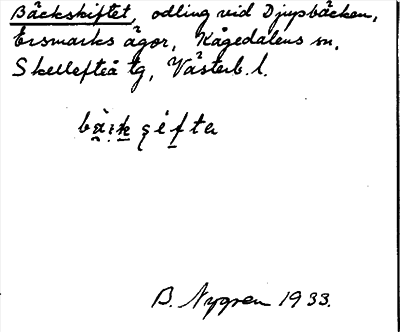 Bäckskiftet, odling vid Djupbäcken,
Ersmarks ägor, Kågedalens sn,
Skellefteå tg, Västerb. l.
B. Nygren 1933.